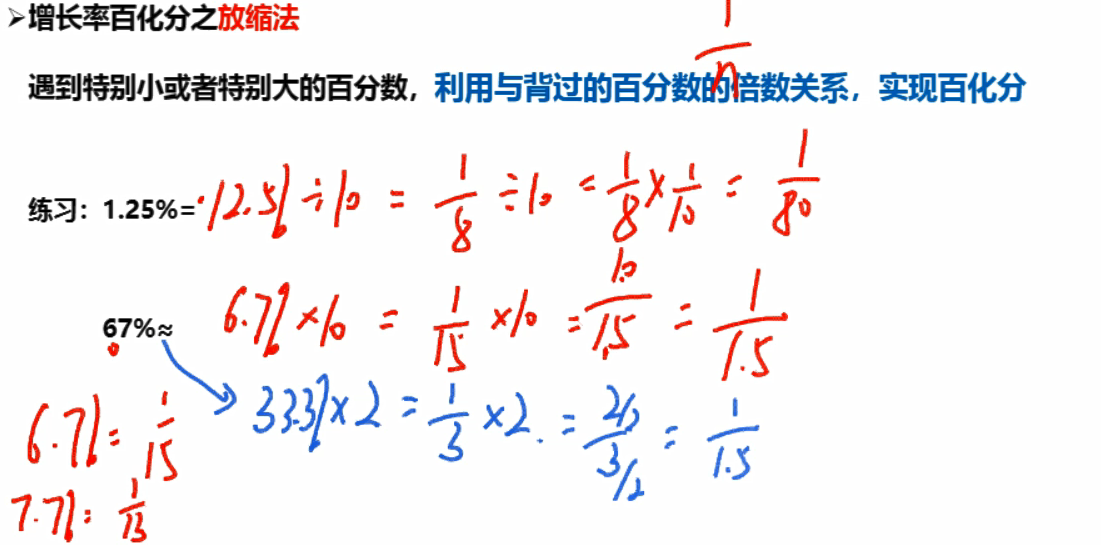 ➤增长率百化分之放缩法
1/n
遇到特别小或者特别大的百分数，利用与背过的百分数的倍数关系，实现百化分
练习：1.25%=12.5%÷10 = 1/8 ÷10 = 1/8 × 1/10 = 1/80
67%≈ 6.7%×10 = 1/15 ×10 = 10/15 = 1/1.5
33.3%×2 = 1/3 ×2 = 2/2 / 3/2 = 1/1.5
6.7%= 1/15
7.7%= 1/13